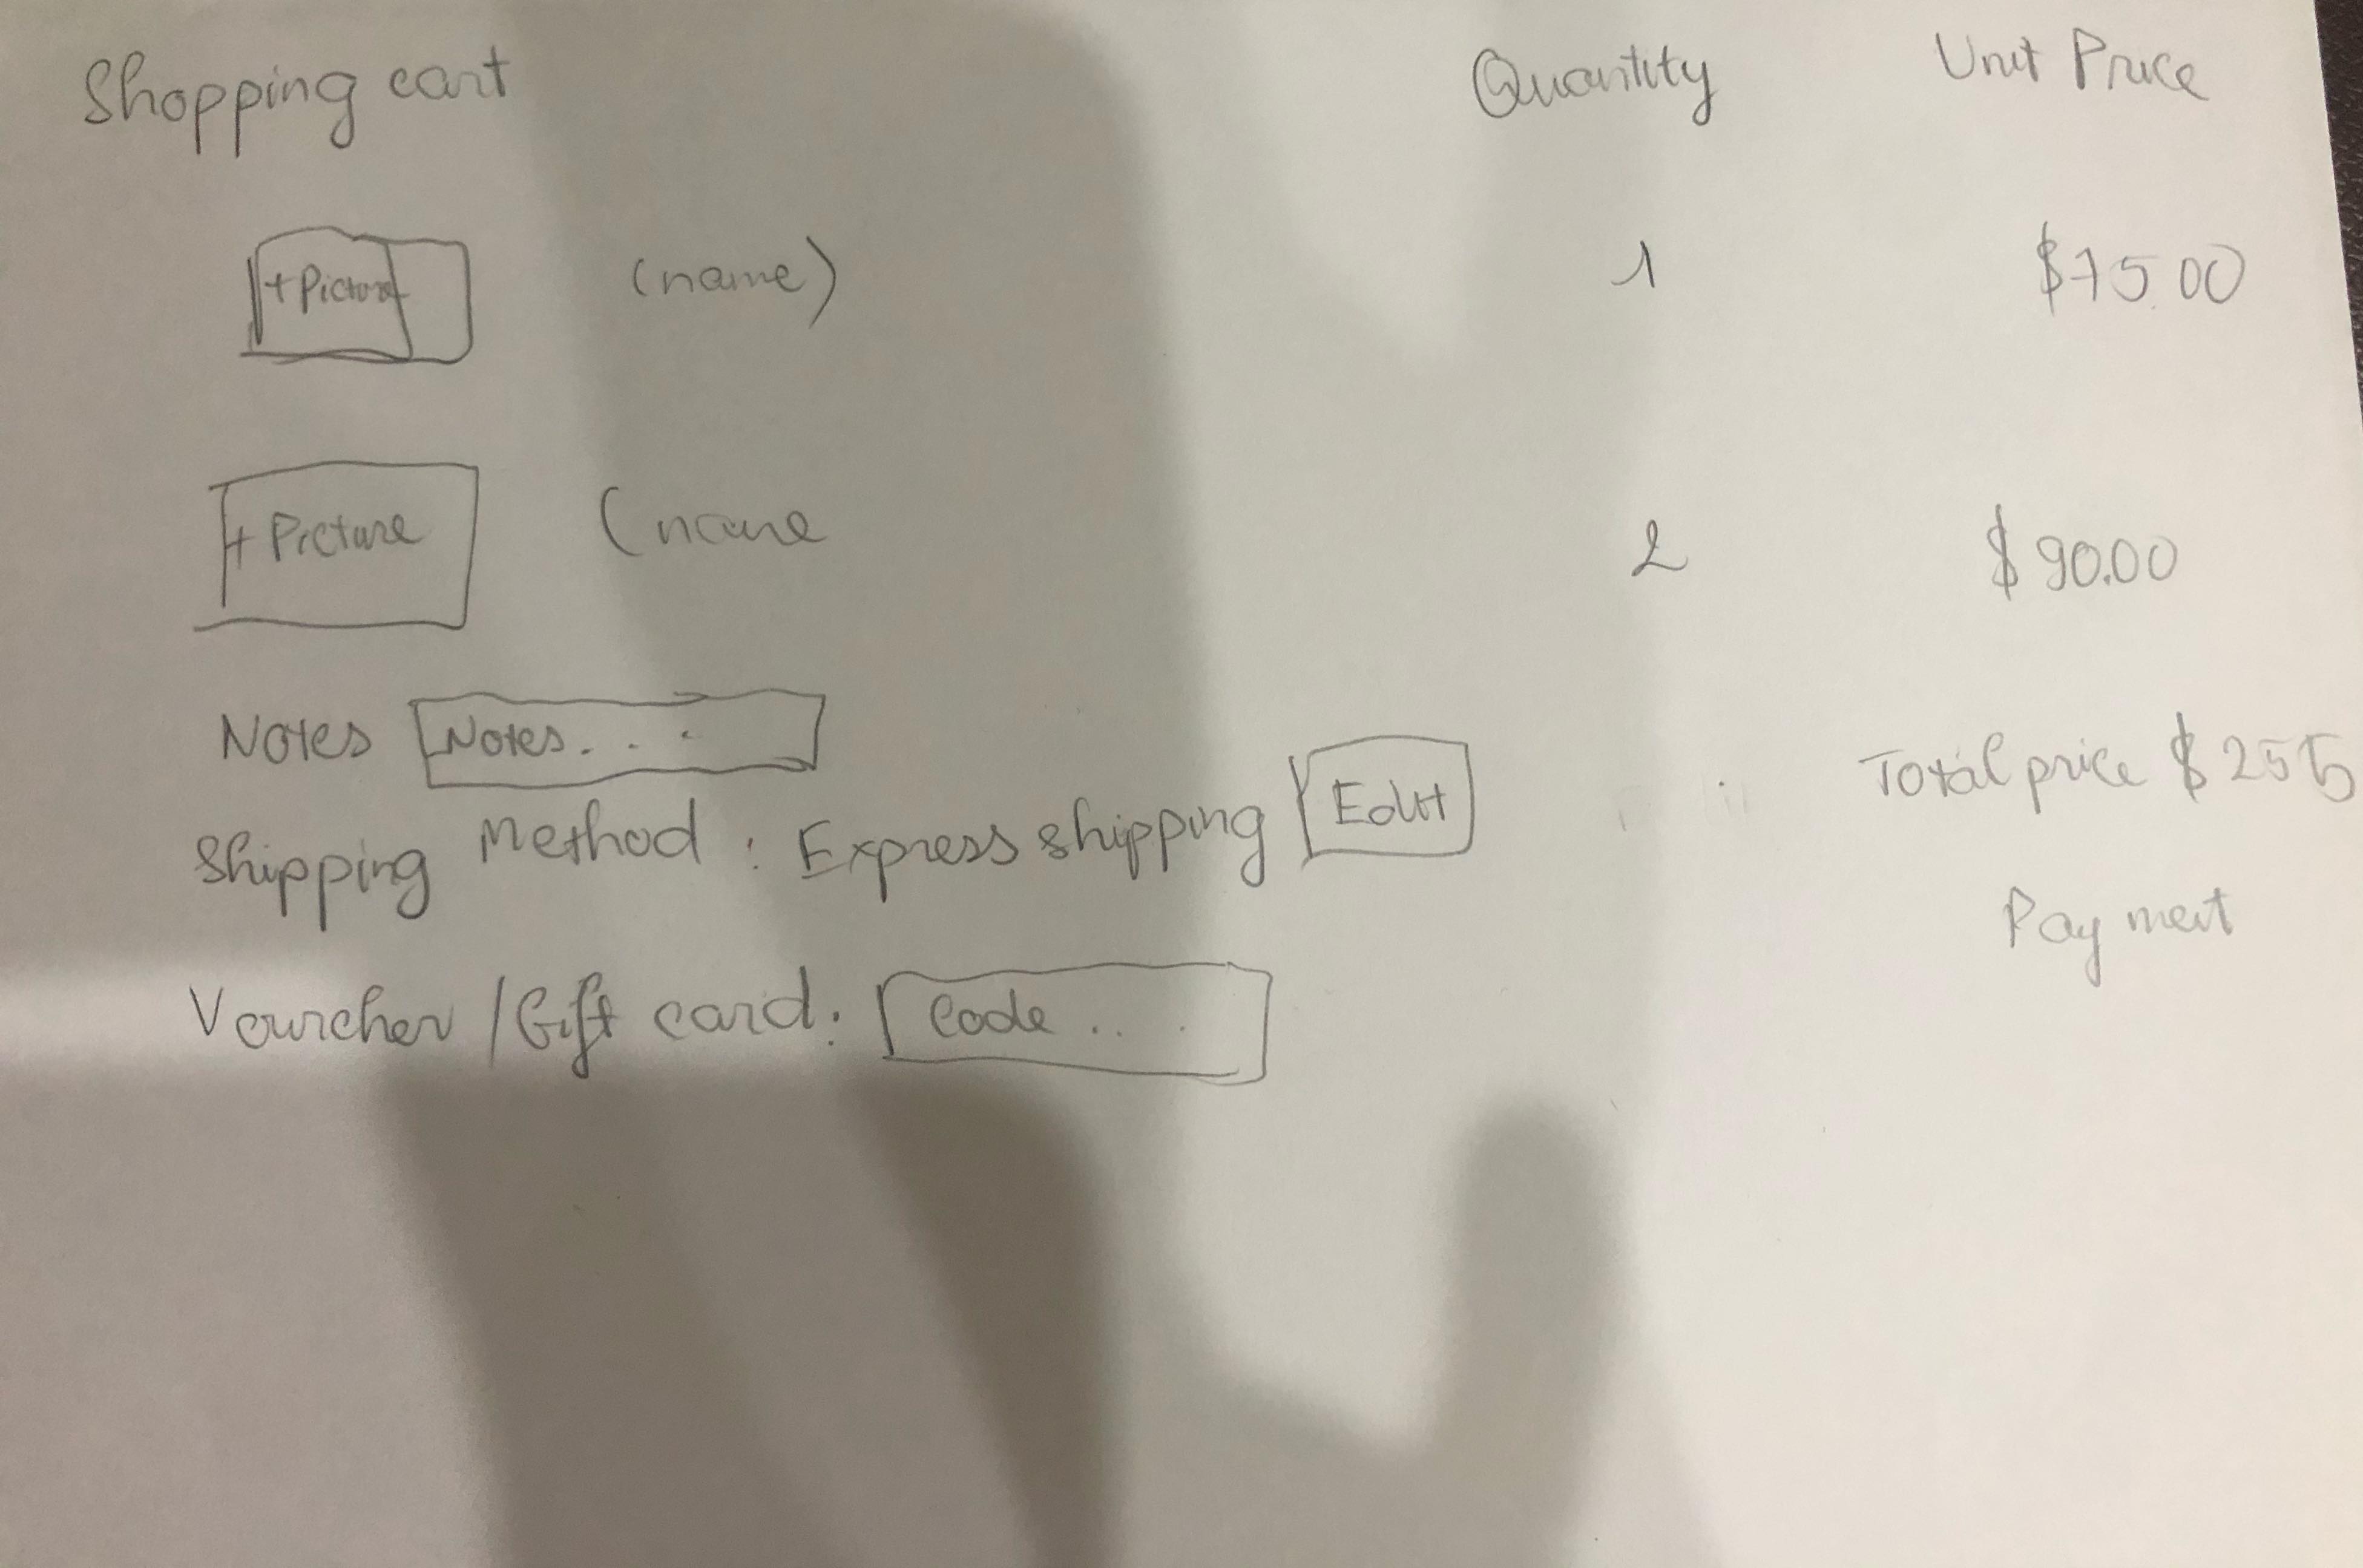 Shopping cart Quantity Unit Price
+Picture (name) 1 $75.00
+ Picture (name 2 $90.00
Notes Notes...
Total price $255
Shipping Method : Express shipping Edit
Payment
Vourcher / Gift card: Code ...